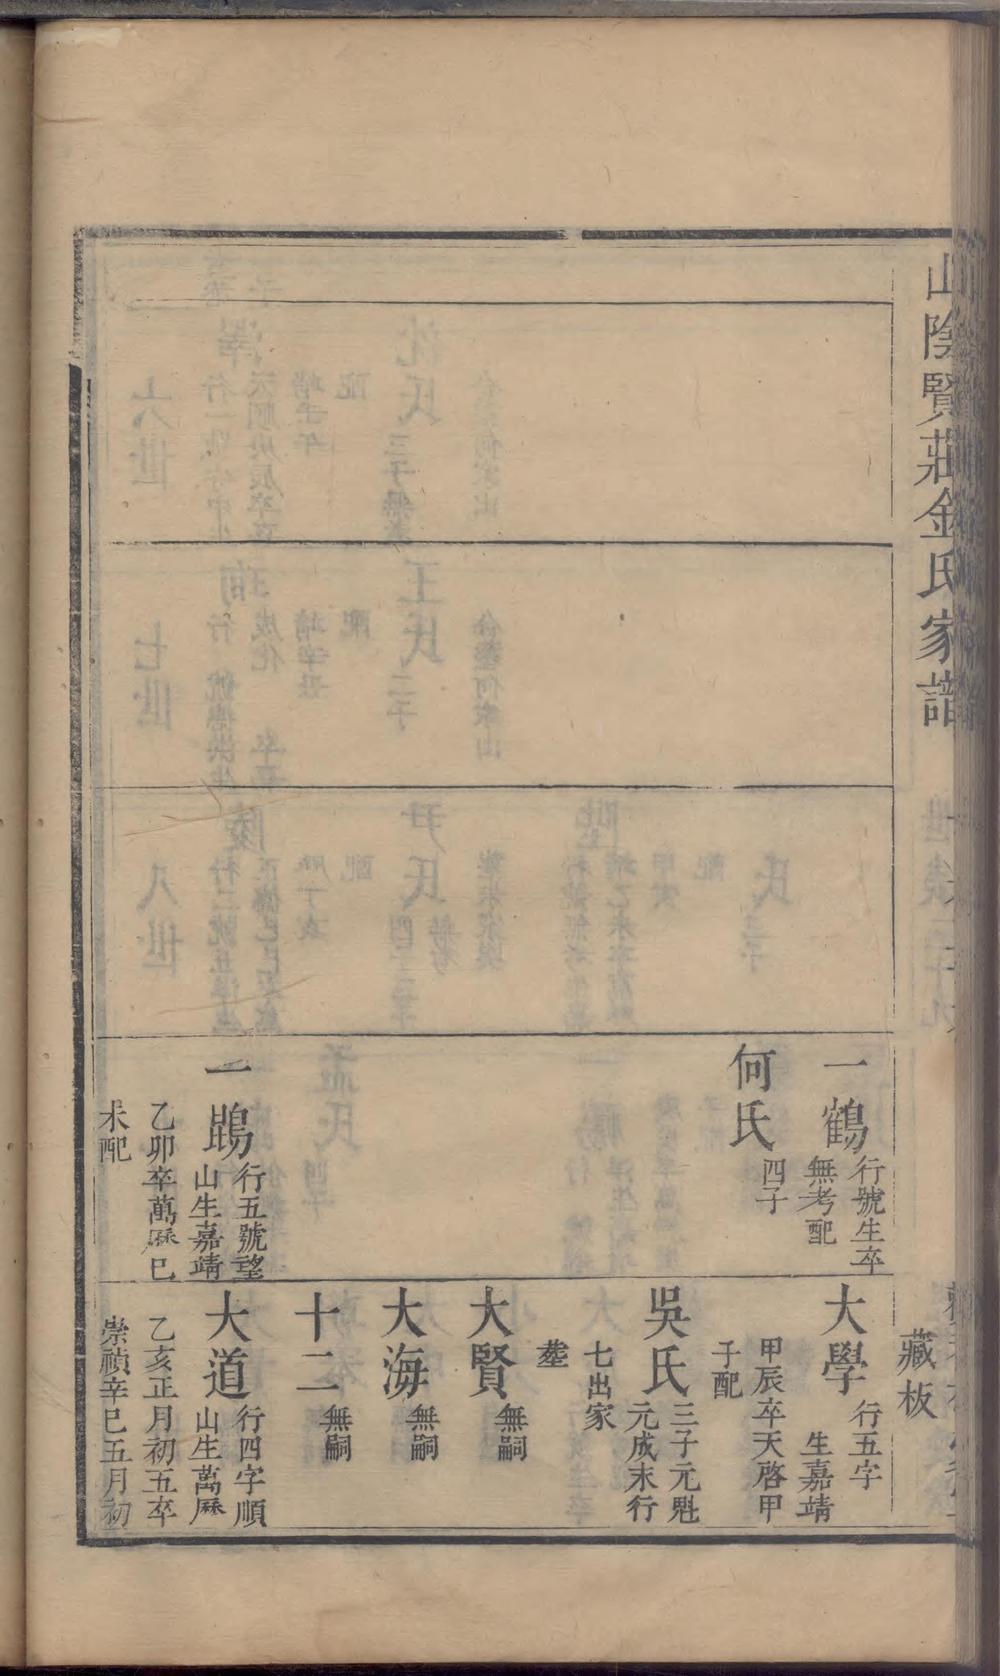 山陰賢莊金氏家譜
藏板
一鶴
行號生卒
無考配
何氏
四子
一鵾
行五號望
山生嘉靖
乙卯卒萬曆巳
未配
大學
行五字
生嘉靖
甲辰卒天啓甲
子配
吳氏
三子元魁
元成末行
七出家
塟
大賢
無嗣
大海
無嗣
十二
無嗣
大道
行四字順
山生萬曆
乙亥正月初五卒
崇禎辛巳五月初